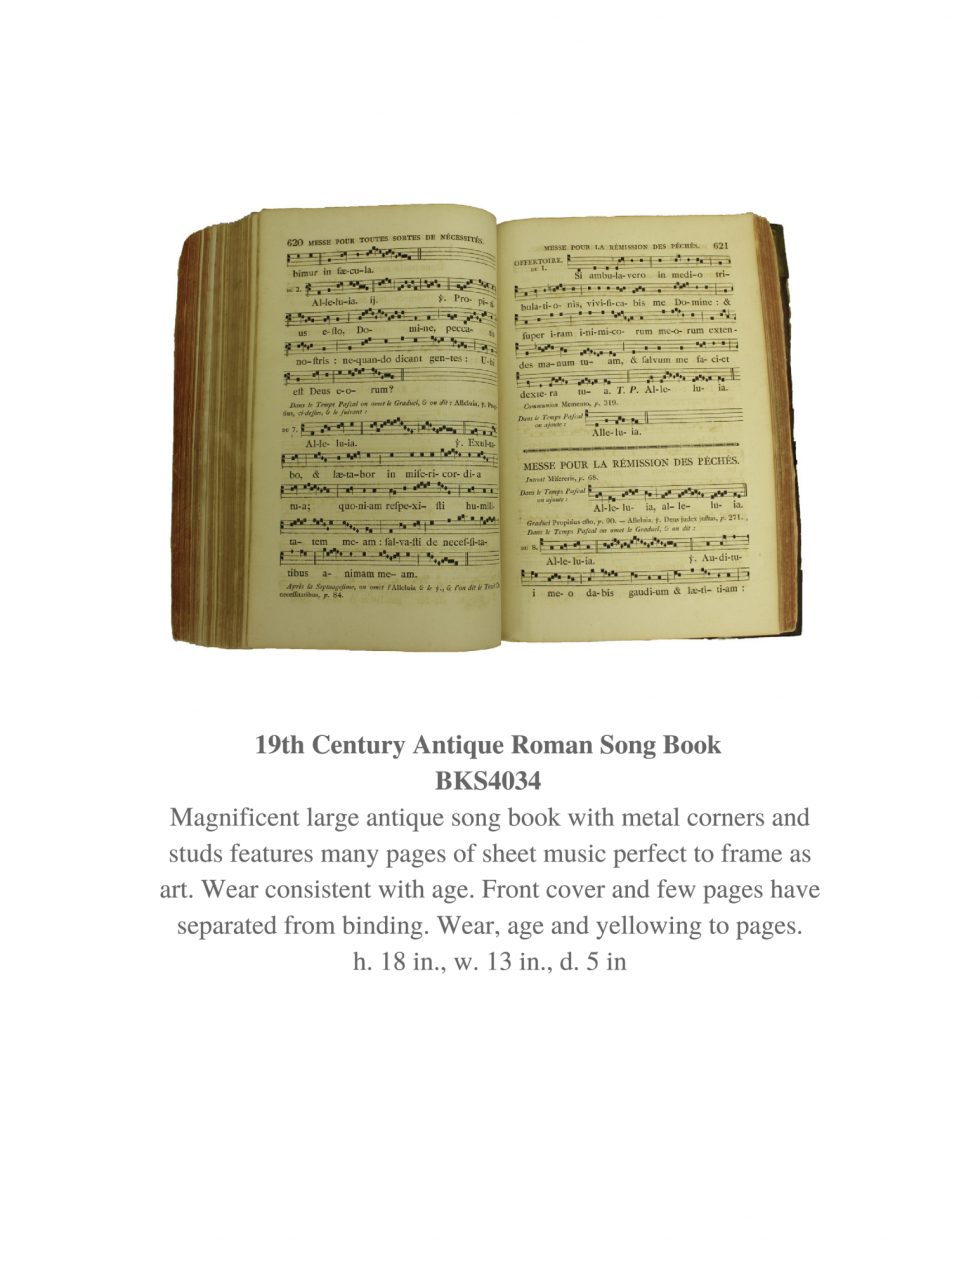 620 MESSE POUR TOUTES SORTES DE NÉCESSITÉS.
bimur in ſæ-cu-la.
DU 2.
Al-le-lu-ia. ij. ℣. Pro- pi-ti-
us e-ſto, Do- mi-ne, pecca- tis
no-ſtris : ne-quan-do dicant gen-tes : U-bi
eſt Deus e-o- rum?
Dans le Temps Paſcal on omet le Graduel, & on dit : Alleluia, ℣. Propi-
tius, ci-deſſus, & le ſuivant :
DU 7.
Al-le- lu-ia. ℣. Exul-ta-
bo, & læ-ta-bor in miſe-ri- cor- di-a
tu-a; quo-ni-am reſpe-xi- ſti hu-mili-
ta- tem me-am : ſal-va-ſti de neceſ-ſi-ta-
tibus a- nimam me- am.
Après la Septuageſime, on omet l'Alleluia & le ℣., & l'on dit le Trait De
neceſſitatibus, p. 84.
MESSE POUR LA RÉMISSION DES PÉCHÉS. 621
OFFERTOIRE.
DU 1.
Si ambu-la-vero in medi-o tri-
bula-ti-o- nis, vivi-fi-ca- bis me Do-mine : &
ſuper i-ram i-ni-mi-co- rum me-o- rum exten-
des ma-num tu- am, & ſalvum me fa- ci-et
dexte-ra tu- a. T. P. Al-le- lu- ia.
Communion Memento, p. 319.
Dans le Temps Paſcal
on ajoute :
Alle-lu- ia.
MESSE POUR LA RÉMISSION DES PÉCHÉS.
Introït Miſereris, p. 68.
Dans le Temps Paſcal
on ajoute :
Al-le- lu-ia, al- le- lu- ia.
Graduel Propitius eſto, p. 90. — Alleluia, ℣. Deus judex juſtus, p. 271.
Dans le Temps Paſcal on omet le Graduel, & on dit :
DU 8.
Al-le- lu-ia. ℣. Au-di-tu-
i me- o da-bis gaudi-um & læ-ti- ti-am :
19th Century Antique Roman Song Book
BKS4034
Magnificent large antique song book with metal corners and
studs features many pages of sheet music perfect to frame as
art. Wear consistent with age. Front cover and few pages have
separated from binding. Wear, age and yellowing to pages.
h. 18 in., w. 13 in., d. 5 in